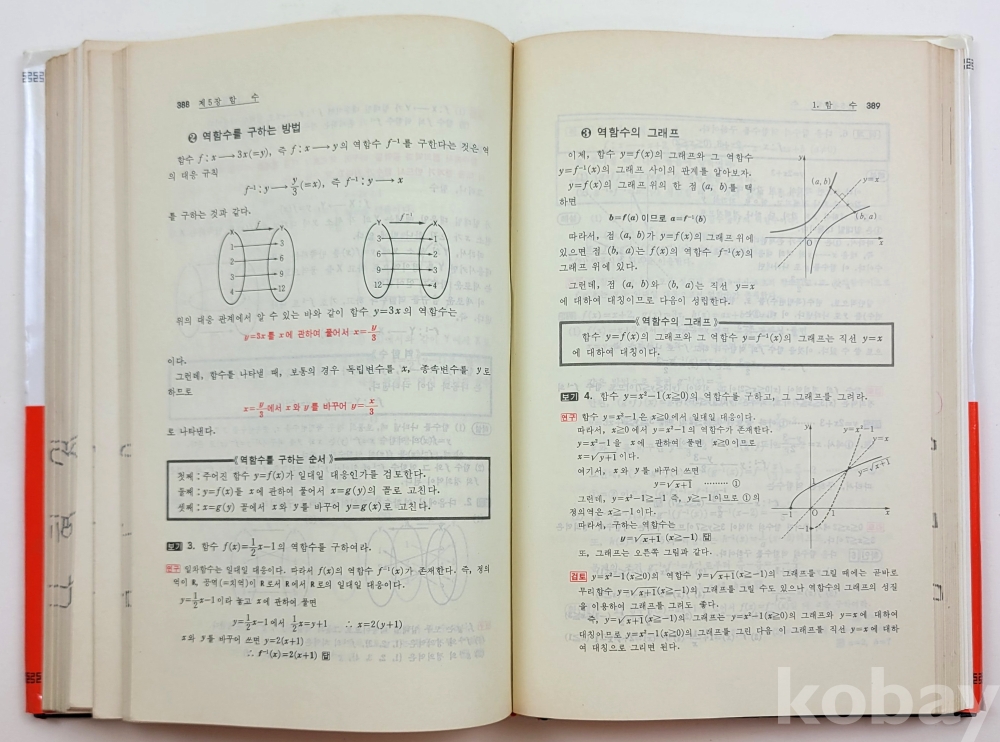 388 제5장 함 수
② 역함수를 구하는 방법
함수 f : x ⟶ 3x(=y), 즉 f : x ⟶ y의 역함수 f⁻¹를 구한다는 것은 역
의 대응 규칙
f⁻¹ : y ⟶ y/3 (=x), 즉 f⁻¹ : y ⟶ x
를 구하는 것과 같다.
f
X Y
1 3
2 6
3 9
4 12
f⁻¹
Y X
3 1
6 2
9 3
12 4
위의 대응 관계에서 알 수 있는 바와 같이 함수 y=3x의 역함수는
y=3x를 x에 관하여 풀어서 x=y/3
이다.
그런데, 함수를 나타낼 때, 보통의 경우 독립변수를 x, 종속변수를 y로
하므로
x=y/3에서 x와 y를 바꾸어 y=x/3
로 나타낸다.
《역함수를 구하는 순서》
첫째 : 주어진 함수 y=f(x)가 일대일 대응인가를 검토한다.
둘째 : y=f(x)를 x에 관하여 풀어서 x=g(y)의 꼴로 고친다.
셋째 : x=g(y) 꼴에서 x와 y를 바꾸어 y=g(x)로 고친다.
보기 3. 함수 f(x)=1/2x−1의 역함수를 구하여라.
연구 일차함수는 일대일 대응이다. 따라서 f(x)의 역함수 f⁻¹(x)가 존재한다. 즉, 정의
역이 R, 공역(=치역)이 R로서 R에서 R로의 일대일 대응이다.
y=1/2x−1이라 놓고 x에 관하여 풀면
y=1/2x−1에서 1/2x=y+1 ∴ x=2(y+1)
x와 y를 바꾸어 쓰면 y=2(x+1)
∴ f⁻¹(x)=2(x+1) 답
1. 함 수 389
③ 역함수의 그래프
이제, 함수 y=f(x)의 그래프와 그 역함수
y=f⁻¹(x)의 그래프 사이의 관계를 알아보자.
y=f(x)의 그래프 위의 한 점 (a, b)를 택
하면
b=f(a)이므로 a=f⁻¹(b)
따라서, 점 (a, b)가 y=f(x)의 그래프 위에
있으면 점 (b, a)는 f(x)의 역함수 f⁻¹(x)의
그래프 위에 있다.
그런데, 점 (a, b)와 (b, a)는 직선 y=x
에 대하여 대칭이므로 다음이 성립한다.
y
(a, b)
y=x
(b, a)
O
x
《역함수의 그래프》
함수 y=f(x)의 그래프와 그 역함수 y=f⁻¹(x)의 그래프는 직선 y=x
에 대하여 대칭이다.
보기 4. 함수 y=x²−1(x≥0)의 역함수를 구하고, 그 그래프를 그려라.
연구 함수 y=x²−1은 x≥0에서 일대일 대응이다.
따라서, x≥0에서 y=x²−1의 역함수가 존재한다.
y=x²−1을 x에 관하여 풀면 x≥0이므로
x=√(y+1)이다.
여기서, x와 y를 바꾸어 쓰면
y=√(x+1) ……… ①
그런데, y=x²−1≥−1 즉, y≥−1이므로 ①의
정의역은 x≥−1이다.
따라서, 구하는 역함수는
y=√(x+1) (x≥−1) 답
또, 그래프는 오른쪽 그림과 같다.
y
y=x²−1
y=x
y=√(x+1)
−1 O 1 x
−1
검토 y=x²−1(x≥0)의 역함수 y=√(x+1)(x≥−1)의 그래프를 그릴 때에는 곧바로
무리함수 y=√(x+1)(x≥−1)의 그래프를 그릴 수도 있으나 역함수의 그래프의 성질
을 이용하여 그래프를 그려도 좋다.
즉, y=√(x+1)(x≥−1)의 그래프는 y=x²−1(x≥0)의 그래프와 y=x에 대하여
대칭이므로 y=x²−1(x≥0)의 그래프를 그린 다음 이 그래프를 직선 y=x에 대하
여 대칭으로 그리면 된다.
kobay